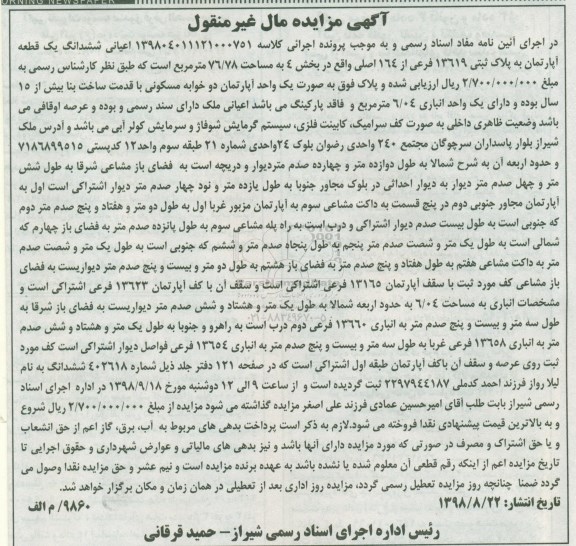 آگهی مزایده مال غیرمنقول
در اجرای آئین نامه مفاد اسناد رسمی و به موجب پرونده اجرائی کلاسه ۱۳۹۸۰۴۰۱۱۱۲۱۰۰۰۷۵۱ اعیانی ششدانگ یک قطعه
آپارتمان به پلاک ثبتی ۱۳۶۱۹ فرعی از ۱۶۴ اصلی واقع در بخش ۴ به مساحت ۷۶/۷۸ مترمربع است که طبق نظر کارشناس رسمی به
مبلغ ۲/۷۰۰/۰۰۰/۰۰۰ ریال ارزیابی شده و پلاک فوق به صورت یک واحد آپارتمان دو خوابه مسکونی با قدمت ساخت بنا بیش از ۱۵
سال بوده و دارای یک واحد انباری ۶/۰۴ مترمربع و فاقد پارکینگ می باشد اعیانی ملک دارای سند رسمی و بوده و عرصه اوقافی می
باشد وضعیت ظاهری داخلی به صورت کف سرامیک، کابینت فلزی، سیستم گرمایش شوفاژ و سرمایش کولر آبی می باشد و آدرس ملک
شیراز بلوار پاسداران سرچوگان مجتمع ۲۴۰ واحدی رضوان بلوک ۲۴واحدی شماره ۲۱ طبقه سوم واحد۱۲ کدپستی ۷۱۸۶۸۹۹۵۱۵
و حدود اربعه آن به شرح شمالا به طول دوازده متر و چهارده صدم متردیوار و دریچه است به فضای باز مشاعی شرقا به طول شش
متر و چهل صدم متر دیوار به دیوار احداثی در بلوک مجاور جنوبا به طول یازده متر و نود چهار صدم متر دیوار اشتراکی است اول به
آپارتمان مجاور جنوبی دوم در پنج قسمت به داکت مشاعی سوم به آپارتمان مزبور غربا اول به طول دو متر و هفتاد و پنج صدم متر دوم
که جنوبی است به طول بیست صدم دیوار اشتراکی و درب است به راه پله مشاعی سوم به طول پانزده صدم متر به فضای باز چهارم که
شمالی است به طول یک متر و شصت صدم متر پنجم به طول پنجاه صدم متر و ششم که جنوبی است به طول یک متر و شصت صدم
متر به داکت مشاعی هفتم به طول هفتاد و پنج صدم متر به فضای باز هشتم به طول دو متر و بیست و پنج صدم متر دیواریست به فضای
باز مشاعی کف مورد ثبت با سقف آپارتمان ۱۳۱۶۵ فرعی اشتراکی است و سقف آن با کف آپارتمان ۱۳۶۲۳ فرعی اشتراکی است و
مشخصات انباری به مساحت ۶/۰۴ به حدود اربعه شمالا به طول یک متر و هشتاد و شش صدم متر دیواریست به فضای باز شرقا به
طول سه متر و بیست و پنج صدم متر به انباری ۱۳۶۶۰ فرعی دوم درب است به راهرو و جنوبا به طول یک متر و هشتاد و شش صدم
متر به انباری ۱۳۶۵۸ فرعی غربا به طول سه متر و بیست و پنج صدم متر به انباری ۱۳۶۵۴ فرعی فواصل دیوار اشتراکی است کف مورد
ثبت روی عرصه و سقف آن باکف آپارتمان طبقه اول اشتراکی است که در صفحه ۱۲۱ دفتر جلد ذیل شماره ۴۰۲۶۱۸ ششدانگ به نام
لیلا رواز فرزند احمد کدملی ۲۲۹۷۹۴۴۱۸۷ ثبت گردیده است و از ساعت ۹ الی ۱۲ دوشنبه مورخ ۱۳۹۸/۹/۱۸ در اداره اجرای اسناد
رسمی شیراز بابت طلب آقای امیرحسین عمادی فرزند علی اصغر مزایده گذاشته می شود مزایده از مبلغ ۲/۷۰۰/۰۰۰/۰۰۰ ریال شروع
و به بالاترین قیمت پیشنهادی نقدا فروخته می شود.لازم به ذکر است پرداخت بدهی های مربوط به آب، برق، گاز اعم از حق انشعاب
و یا حق اشتراک و مصرف در صورتی که مورد مزایده دارای آنها باشد و نیز بدهی های مالیاتی و عوارض شهرداری و حقوق اجرایی تا
تاریخ مزایده اعم از اینکه رقم قطعی آن معلوم شده یا نشده باشد به عهده برنده مزایده است و نیم عشر و حق مزایده نقدا وصول می
گردد ضمنا چنانچه روز مزایده تعطیل رسمی گردد، مزایده روز اداری بعد از تعطیلی در همان زمان و مکان برگزار خواهد شد.
تاریخ انتشار: ۱۳۹۸/۸/۲۲
۹۸۶۰/ م الف
رئیس اداره اجرای اسناد رسمی شیراز– حمید قرقانی